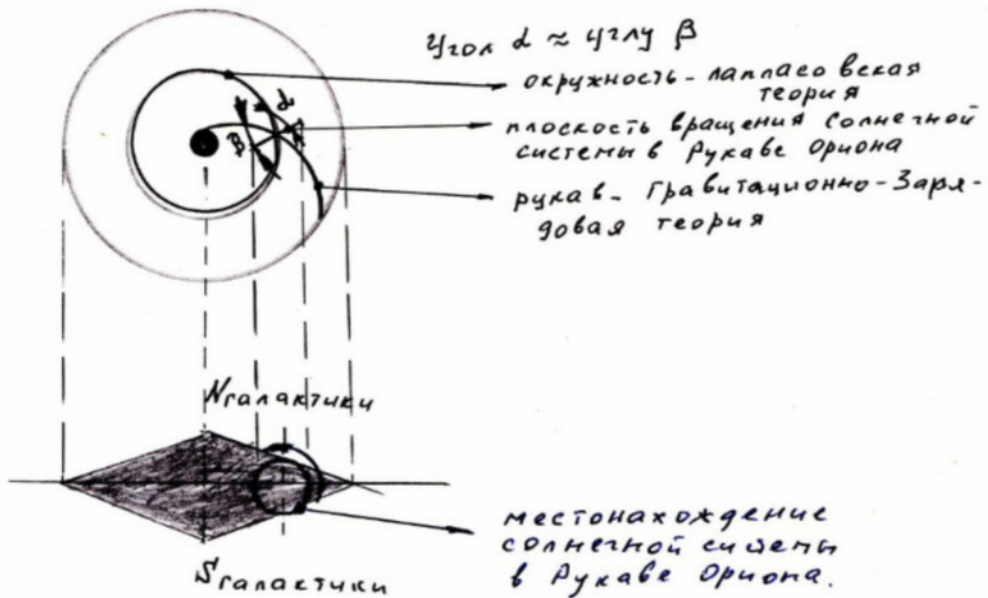 Угол α ≈ углу β
окружность - лапласовская
теория
α
β
плоскость вращения солнечной
системы в Рукаве Ориона
рукав - Гравитационно-Заря-
довая теория
N галактики
местонахождение
солнечной системы
в Рукаве Ориона.
S галактики